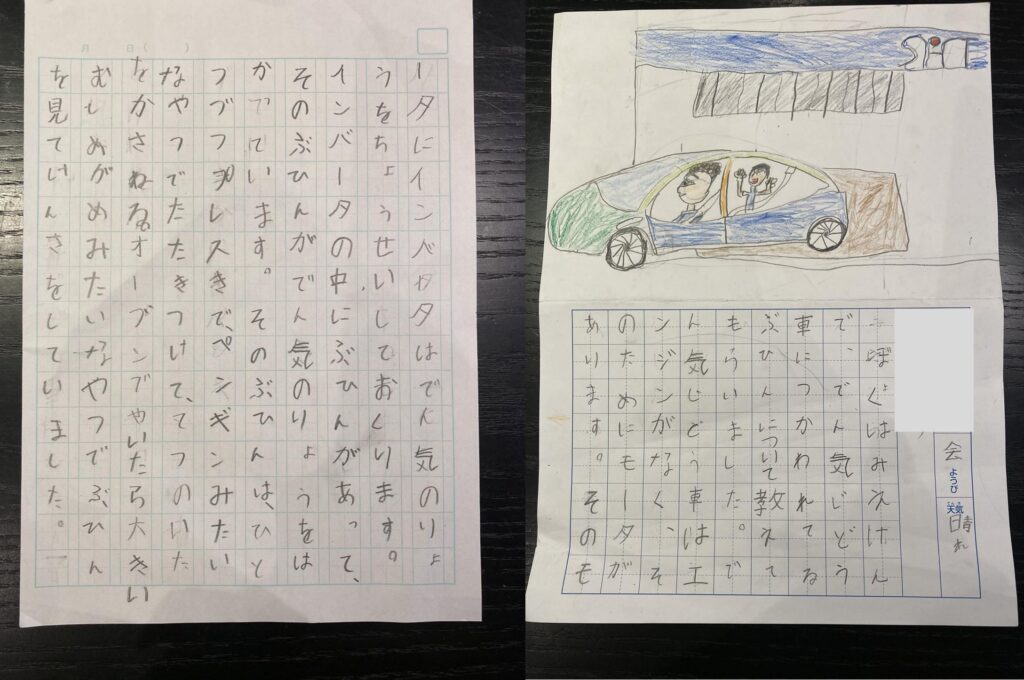 会ようび 天気 晴れ
ぼくはみえけん
で、でん気じどう
車につかわれてる
ぶひんについて教えて
もらいました。で
ん気じどう車はエ
ンジンがなく、そ
のためにモータが
あります。そのモ
月 日( )
ータにインバータはでん気のりょ
うをちょうせいしておくります。
インバータの中にぶひんがあって、
そのぶひんがでん気のりょうをは
かっています。そのぶひんは、ひと
つづつプレスきで、ペンギンみたい
なやつでたたきつけて、てつのいた
をかさねる。オーブンでやいたら大きい
むしめがめみたいなやつでぶひん
を見てけんさをしていました。